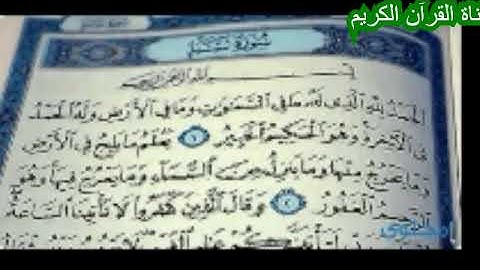 ناة القرآن الكريم
سُورَةُ سَبَإٍ
بِسْمِ اللَّهِ الرَّحْمَٰنِ الرَّحِيمِ
الْحَمْدُ لِلَّهِ الَّذِي لَهُ مَا فِي السَّمَاوَاتِ وَمَا فِي الْأَرْضِ وَلَهُ الْحَمْدُ
فِي الْآخِرَةِ وَهُوَ الْحَكِيمُ الْخَبِيرُ ١ يَعْلَمُ مَا يَلِجُ فِي الْأَرْضِ
وَمَا يَخْرُجُ مِنْهَا وَمَا يَنزِلُ مِنَ السَّمَاءِ وَمَا يَعْرُجُ فِيهَا وَهُوَ
الرَّحِيمُ الْغَفُورُ ٢ وَقَالَ الَّذِينَ كَفَرُوا لَا تَأْتِينَا السَّاعَةُ
محتوى